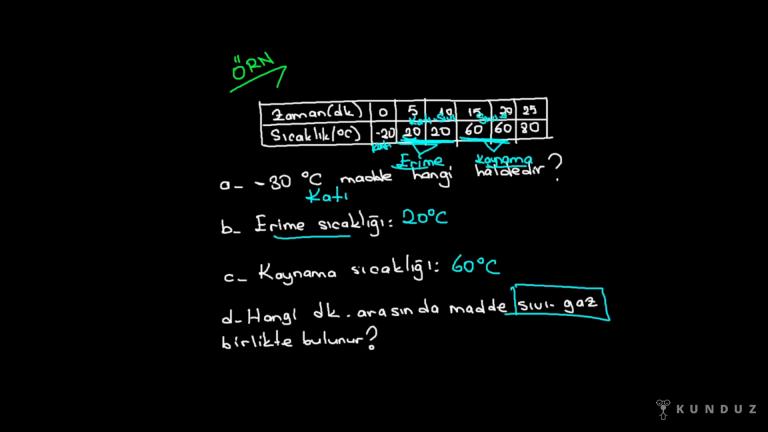 ÖRN
Zaman(dk) 0 5 10 15 20 25
Sıcaklık(°C) -20 20 20 60 60 80
Katı
Erime Kaynama
a- -30 °C madde hangi haldedir?
Katı
b- Erime sıcaklığı: 20°C
c- Kaynama sıcaklığı: 60°C
d- Hangi dk. arasında madde sıvı-gaz
birlikte bulunur?
KUNDUZ